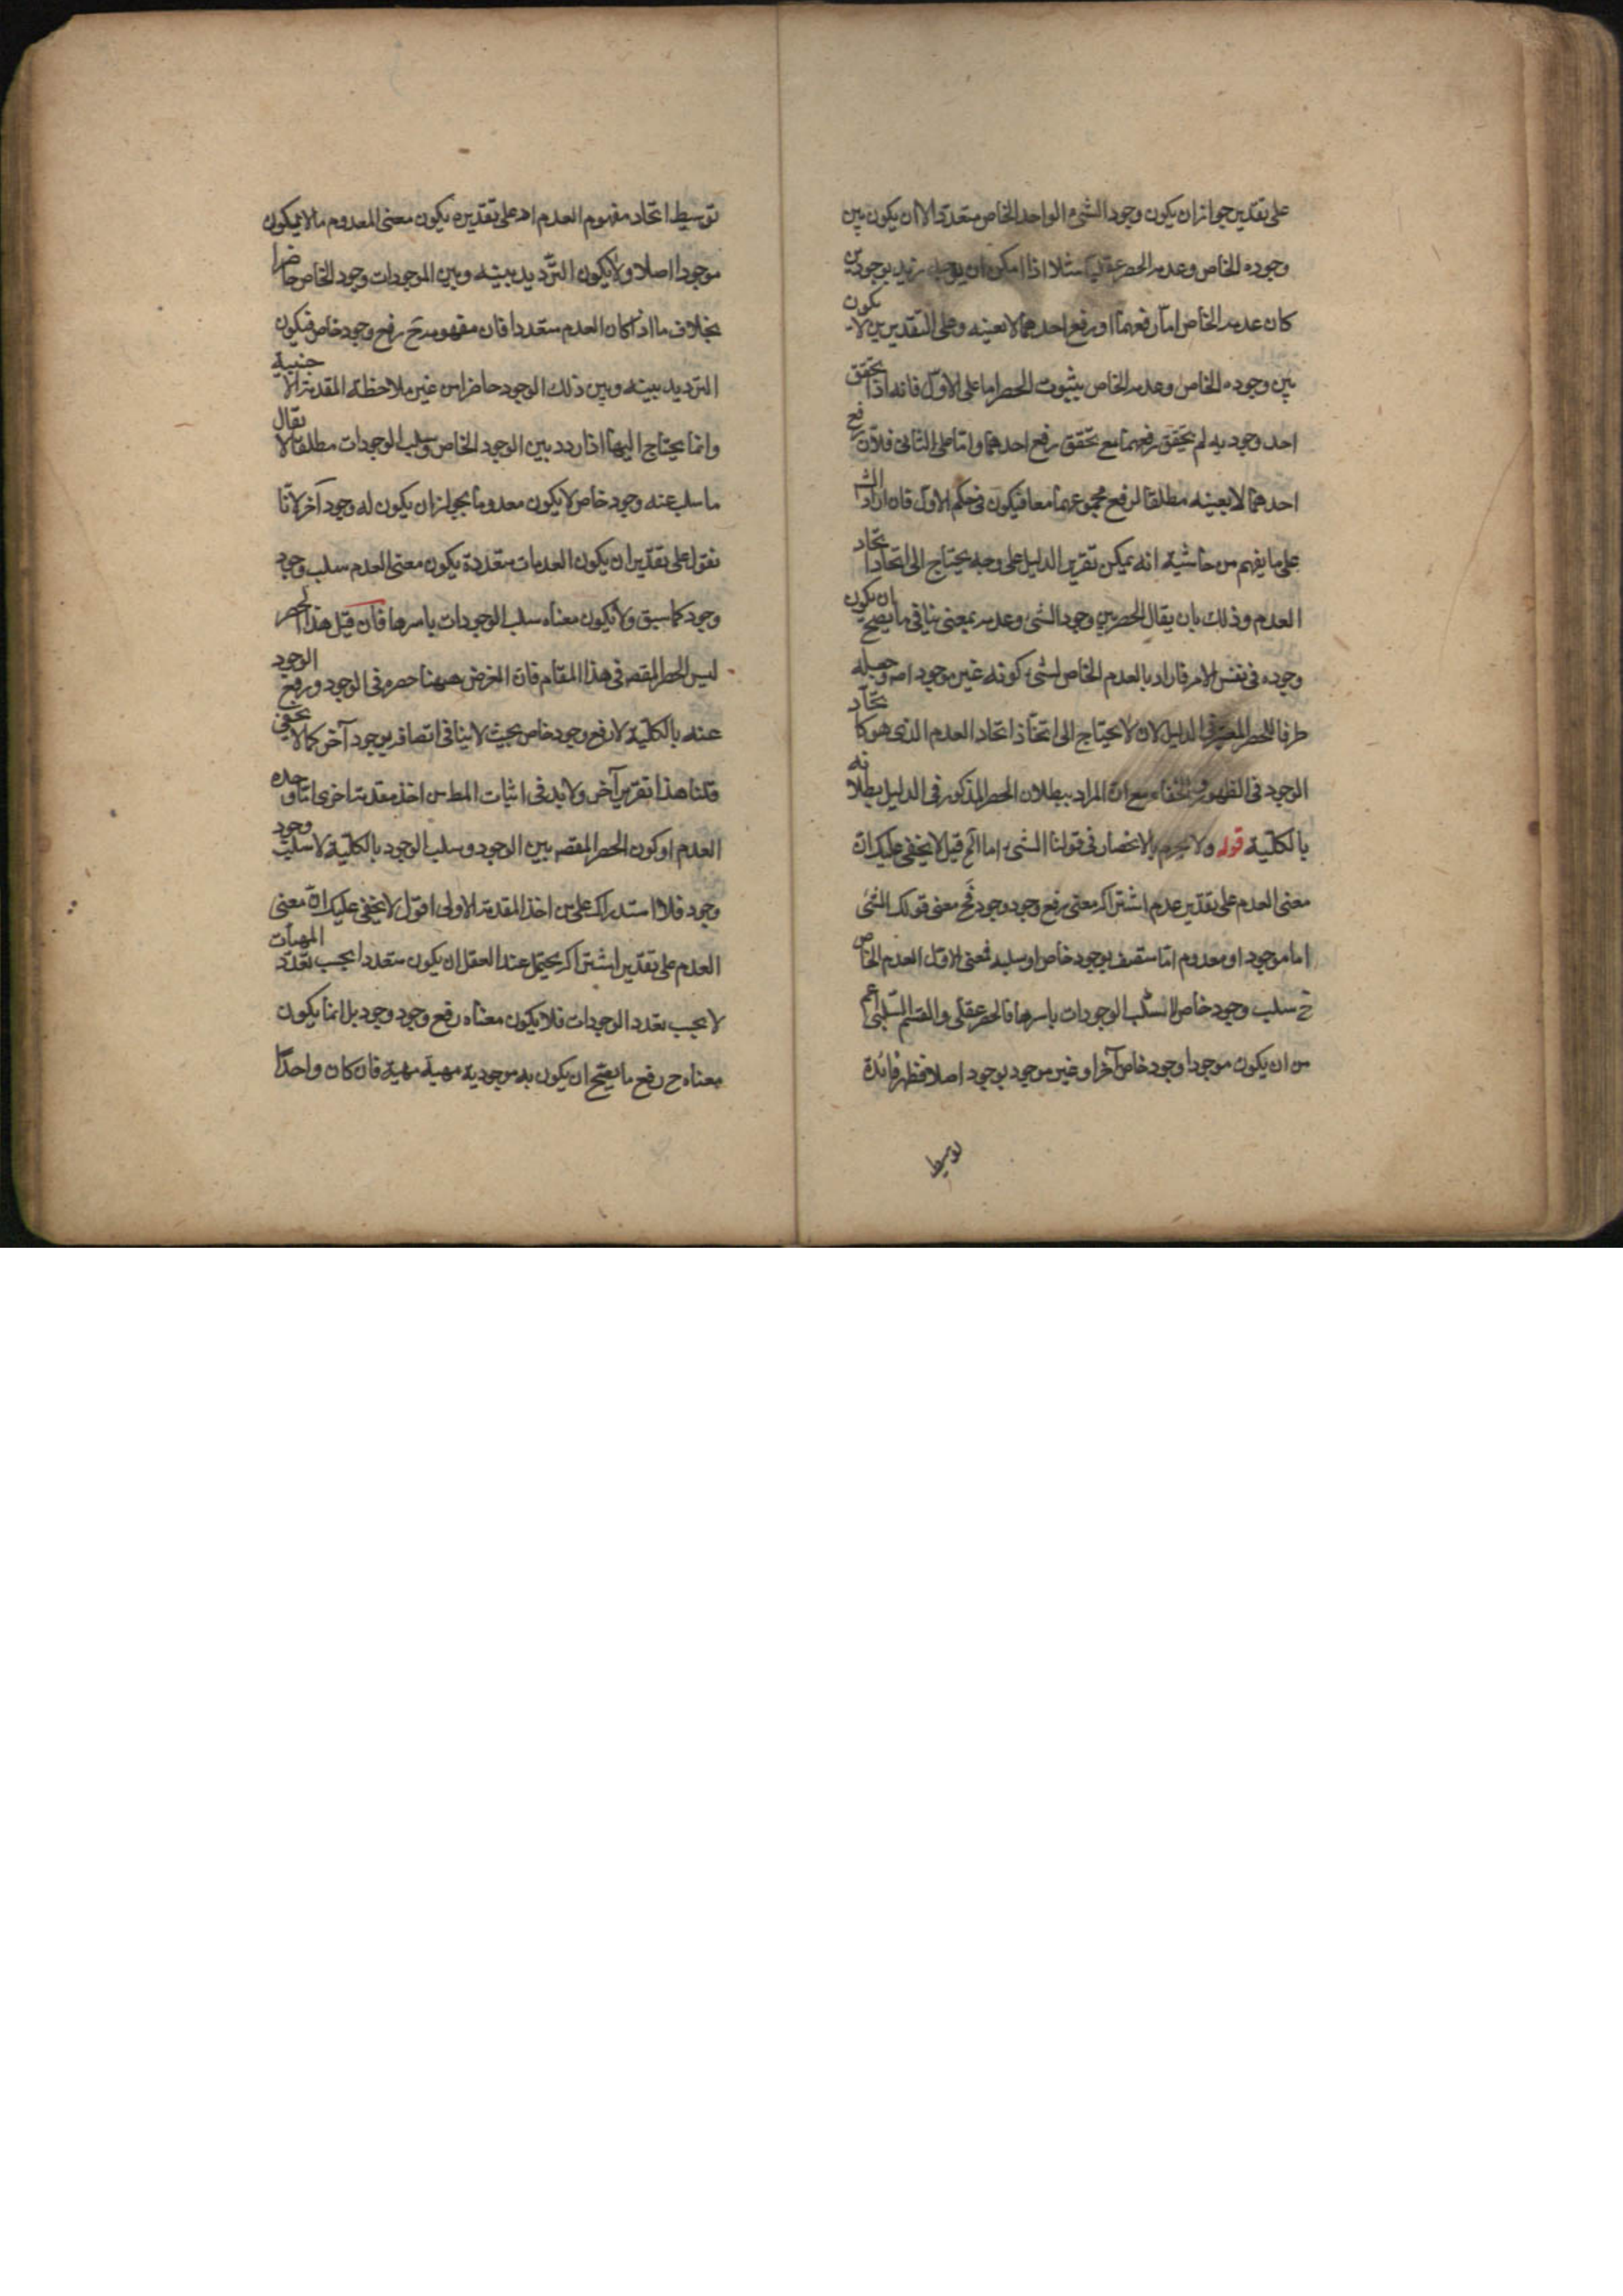 على تقدير جواز ان يكون وجود الشيء الواحد الخاص متعددا الا ان يكون بين
وجوده الخاص وعدمه الحصر عقليا مثلا اذا امكن ان يوجد زيد بوجودين
كان عدمه الخاص اما رفعهما او رفع احدهما لا بعينه وعلى التقديرين لا يكون
بين وجوده الخاص وعدمه الخاص بثبوت الحصر اما على الاول فانه اذا تحقق
احد وجوديه لم يتحقق رفعهما مع تحقق رفع احدهما واما على الثاني فلان رفع
احدهما لا بعينه مطلقا لرفع مجموعهما معا فيكون في حكم الاول فان اراد الش
على ما يفهم من حاشيته انه يمكن تقرير الدليل على وجه يحتاج الى اتحاد
العدم وذلك بان يقال الحصر بين وجود الشئ وعدمه بمعنى ينافي ما يصح ان يكون
وجوده في نفس الامر فاراد بالعدم الخاص لشئ كونه غير موجود اصه وجعله
طرفا للحصر المعتبر في الدليل لان لا يحتاج الى اتخاذ اتحاد العدم الذى هو كاتحاد
الوجود في الظهور والخفاء مع ان المراد ببطلان الحصر المذكور في الدليل بطلانه
بالكلية قوله ولا نجزم بالانحصار في قولنا الشئ اما الخ قيل لا يخفى عليك ان
معنى العدم على تقدير عدم اشتراكه معنى رفع وجود وجود فح معنى قولك الشئ
اما موجود او معدوم اما متصف بوجود خاص او سلبه فمعنى الاول العدم الخاص
ح سلب وجود خاص لا سلب الوجودات باسرها فالحصر عقلى والقسم السلبى اعم
من ان يكون موجودا وجود خاص آخر او غير موجود بوجود اصلا فظهر فائدة
توسيط
توسيط اتحاد مفهوم العدم اذ على تقديره يكون معنى المعدوم ما لا يكون
موجودا اصلا ولا يكون الترديد بينه وبين الموجودات وجود الخاص حاضرا
بخلاف ما اذا كان العدم متعددا فان مفهومه ح رفع وجود خاص فيكون
الترديد بينه وبين ذلك الوجود حاضرا من غير ملاحظة المقدمة الاجنبية
وانما يحتاج اليها اذا ردد بين الوجود الخاص وسلب الوجودات مطلقا لا يقال
ما سلب عنه وجود خاص لا يكون معدوما بجواز ان يكون له وجود آخر لانا
نقول على تقدير ان يكون العدمات متعددة يكون معنى العدم سلب وجود
وجود كما سبق ولا يكون معناه سلب الوجودات باسرها فان قيل هذا الحصر
ليس الحصر المقصه في هذا المقام فان الغرض ههنا حصره في الوجود ورفع الوجود
عنه بالكلية لا رفع وجود خاص بحيث لا ينافى اتصافه بوجود آخر كما لا يخفى
قلنا هذا تقرير آخر ولا بد في اثبات المط من اخذ مقدمة اخرى اما وحدة
العدم او كون الحصر المقصه بين الوجود وسلب الوجود بالكلية لا سلب وجود
وجود فلا استدراك على من اخذ المقدمة الاولى اقول لا يخفى عليك ان معنى
العدم على تقدير اشتراكه يحتمل عند العقل ان يكون متعددا بحسب تعدد المهيات
لا بحسب تعدد الوجودات فلا يكون معناه رفع وجود وجود بل انما يكون
معناه ح رفع ما يصح ان يكون به موجودية مهية مهية فان كان واحدا